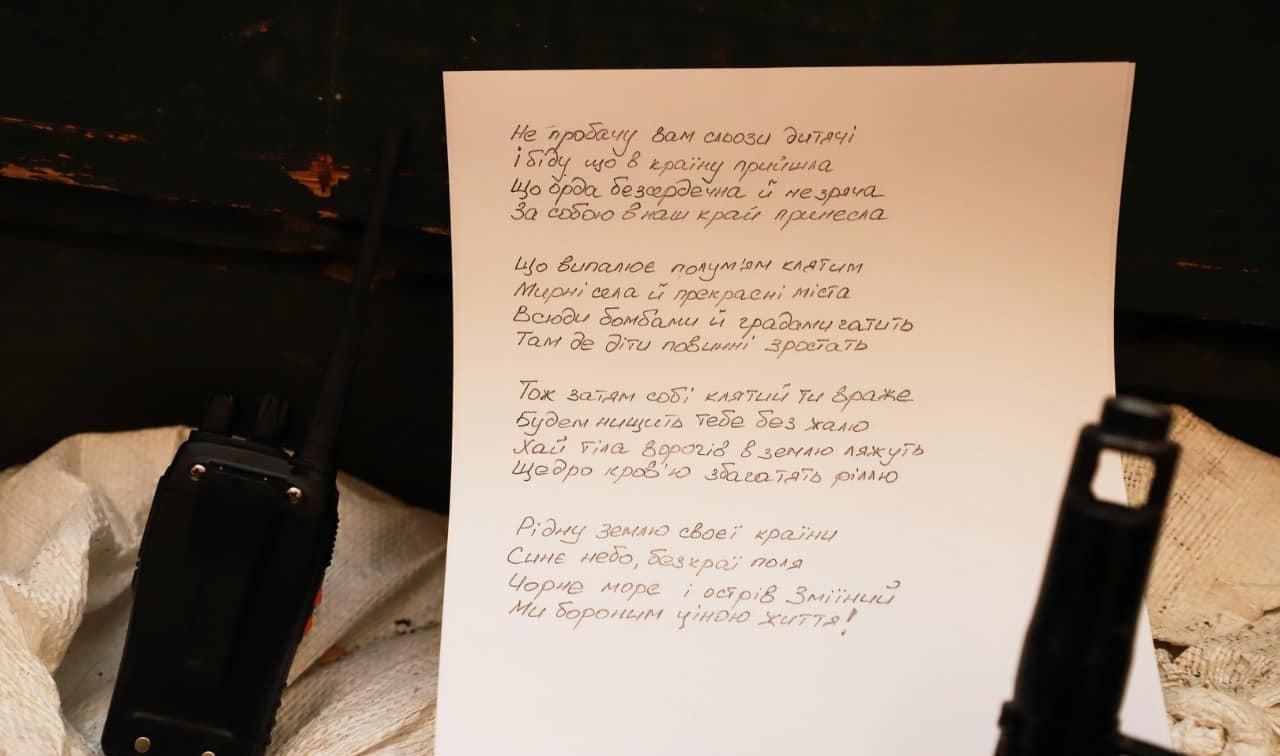 Не пробачу вам сльози дитячі
І біду що в країну прийшла
Що орда безсердечна й незряча
За собою в наш край принесла
Що випалює полум'ям клятим
Мирні села й прекрасні міста
Всюди бомбами й градами гатить
Там де діти повинні зростать
Тож затям собі клятий ти враже
Будем нищить тебе без жалю
Хай тіла ворогів в землю ляжуть
Щедро кров'ю збагатять ріллю
Рідну землю своєї країни
Синє небо, безкраї поля
Чорне море і острів Зміїний
Ми бороним ціною життя!